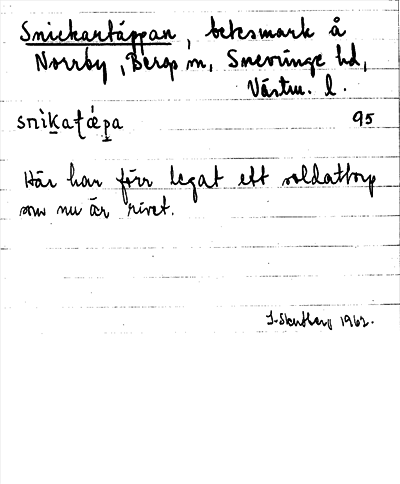 Snickartäppan, betesmark å
Norrby, Bergs sn, Snevringe hd,
Västm. l.
95
Här har förr legat ett soldattorp
som nu är rivet.
1962.